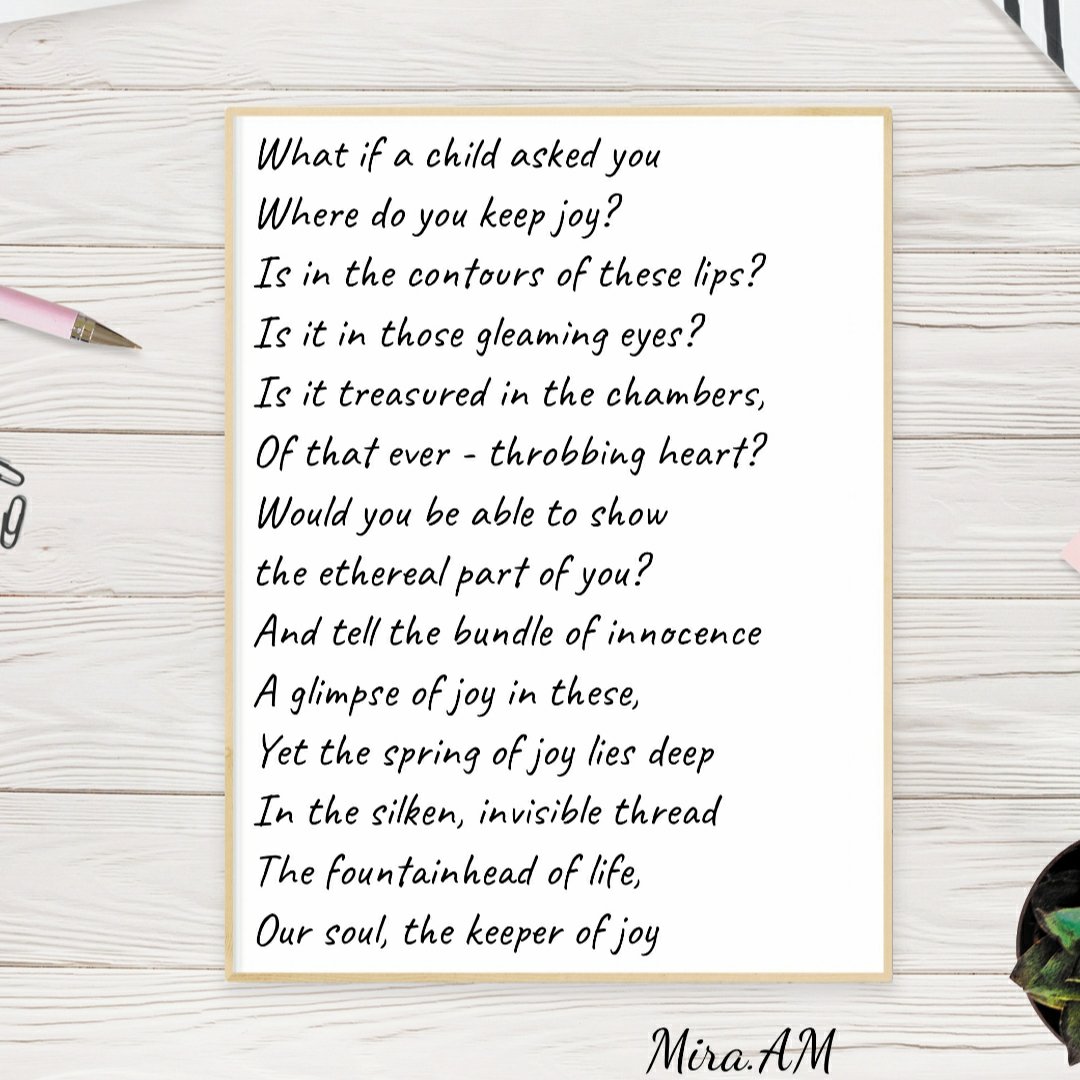 What if a child asked you
Where do you keep joy?
Is in the contours of these lips?
Is it in those gleaming eyes?
Is it treasured in the chambers,
Of that ever - throbbing heart?
Would you be able to show
the ethereal part of you?
And tell the bundle of innocence
A glimpse of joy in these,
Yet the spring of joy lies deep
In the silken, invisible thread
The fountainhead of life,
Our soul, the keeper of joy
Mira.AM